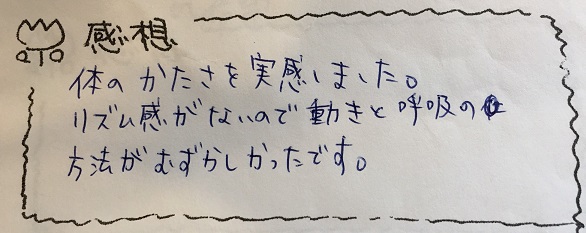 感想
体のかたさを実感しました。
リズム感がないので動きと呼吸の
方法がむずかしかったです。